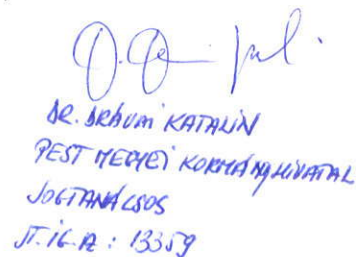 DR. DRÁVAI KATALIN
PEST MEGYEI KORMÁNYHIVATAL
JOGTANÁCSOS
JT. IG. A: 13359